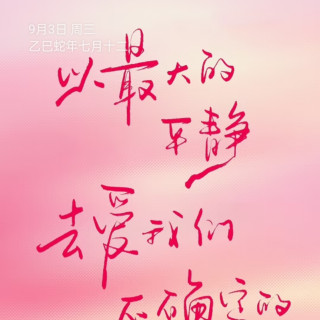 9月3日 周三
乙巳蛇年七月十二
以最大的
平静
去爱我们
不确定的